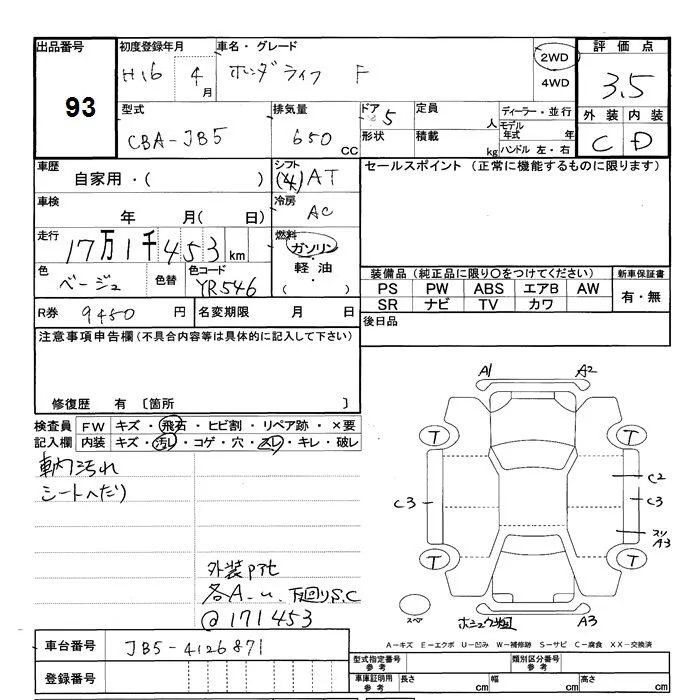 出品番号 初度登録年月 車名・グレード 評価点
93 H16年 4月 ホンダライフ F 2WD 4WD 3.5
型式 排気量 ドア 定員 ディーラー・並行 外装 内装
CBA-JB5 650 CC 5 人 モデル年式 年 C D
形状 積載 kg ハンドル 左・右
車歴 シフト セールスポイント (正常に機能するものに限ります)
自家用・( ) AT
車検 冷房
年 月( 日) AC
走行 燃料
17万1千453 km ガソリン
軽油
( )
色 色替 色コード
ベージュ YR546
装備品 (純正品に限り〇をつけてください) 新車保証書
PS PW ABS エアB AW 有・無
SR ナビ TV カワ
R券 9450 円 名変期限 月 日 後日品
注意事項申告欄 (不具合内容等は具体的に記入して下さい)
修復歴 有 〔箇所 〕
検査員 FW キズ・飛石・ヒビ割・リペア跡・×要
記入欄 内装 キズ・汚レ・コゲ・穴・スレ・キレ・破レ
車内汚れ
シートへたり
外装
各A-u. 下回りS.C
@171453
A1 A2
T T
C2
C3 C3
スリ
A3
T T
スペア A3
A-キズ E-エクボ U-凹み W-補修跡 S-サビ C-腐食 XX-交換済
車台番号 JB5-4126871
登録番号
型式指定番号 参考 類別区分番号 参考
車庫証明用 参考 長さ cm 幅 cm 高さ cm